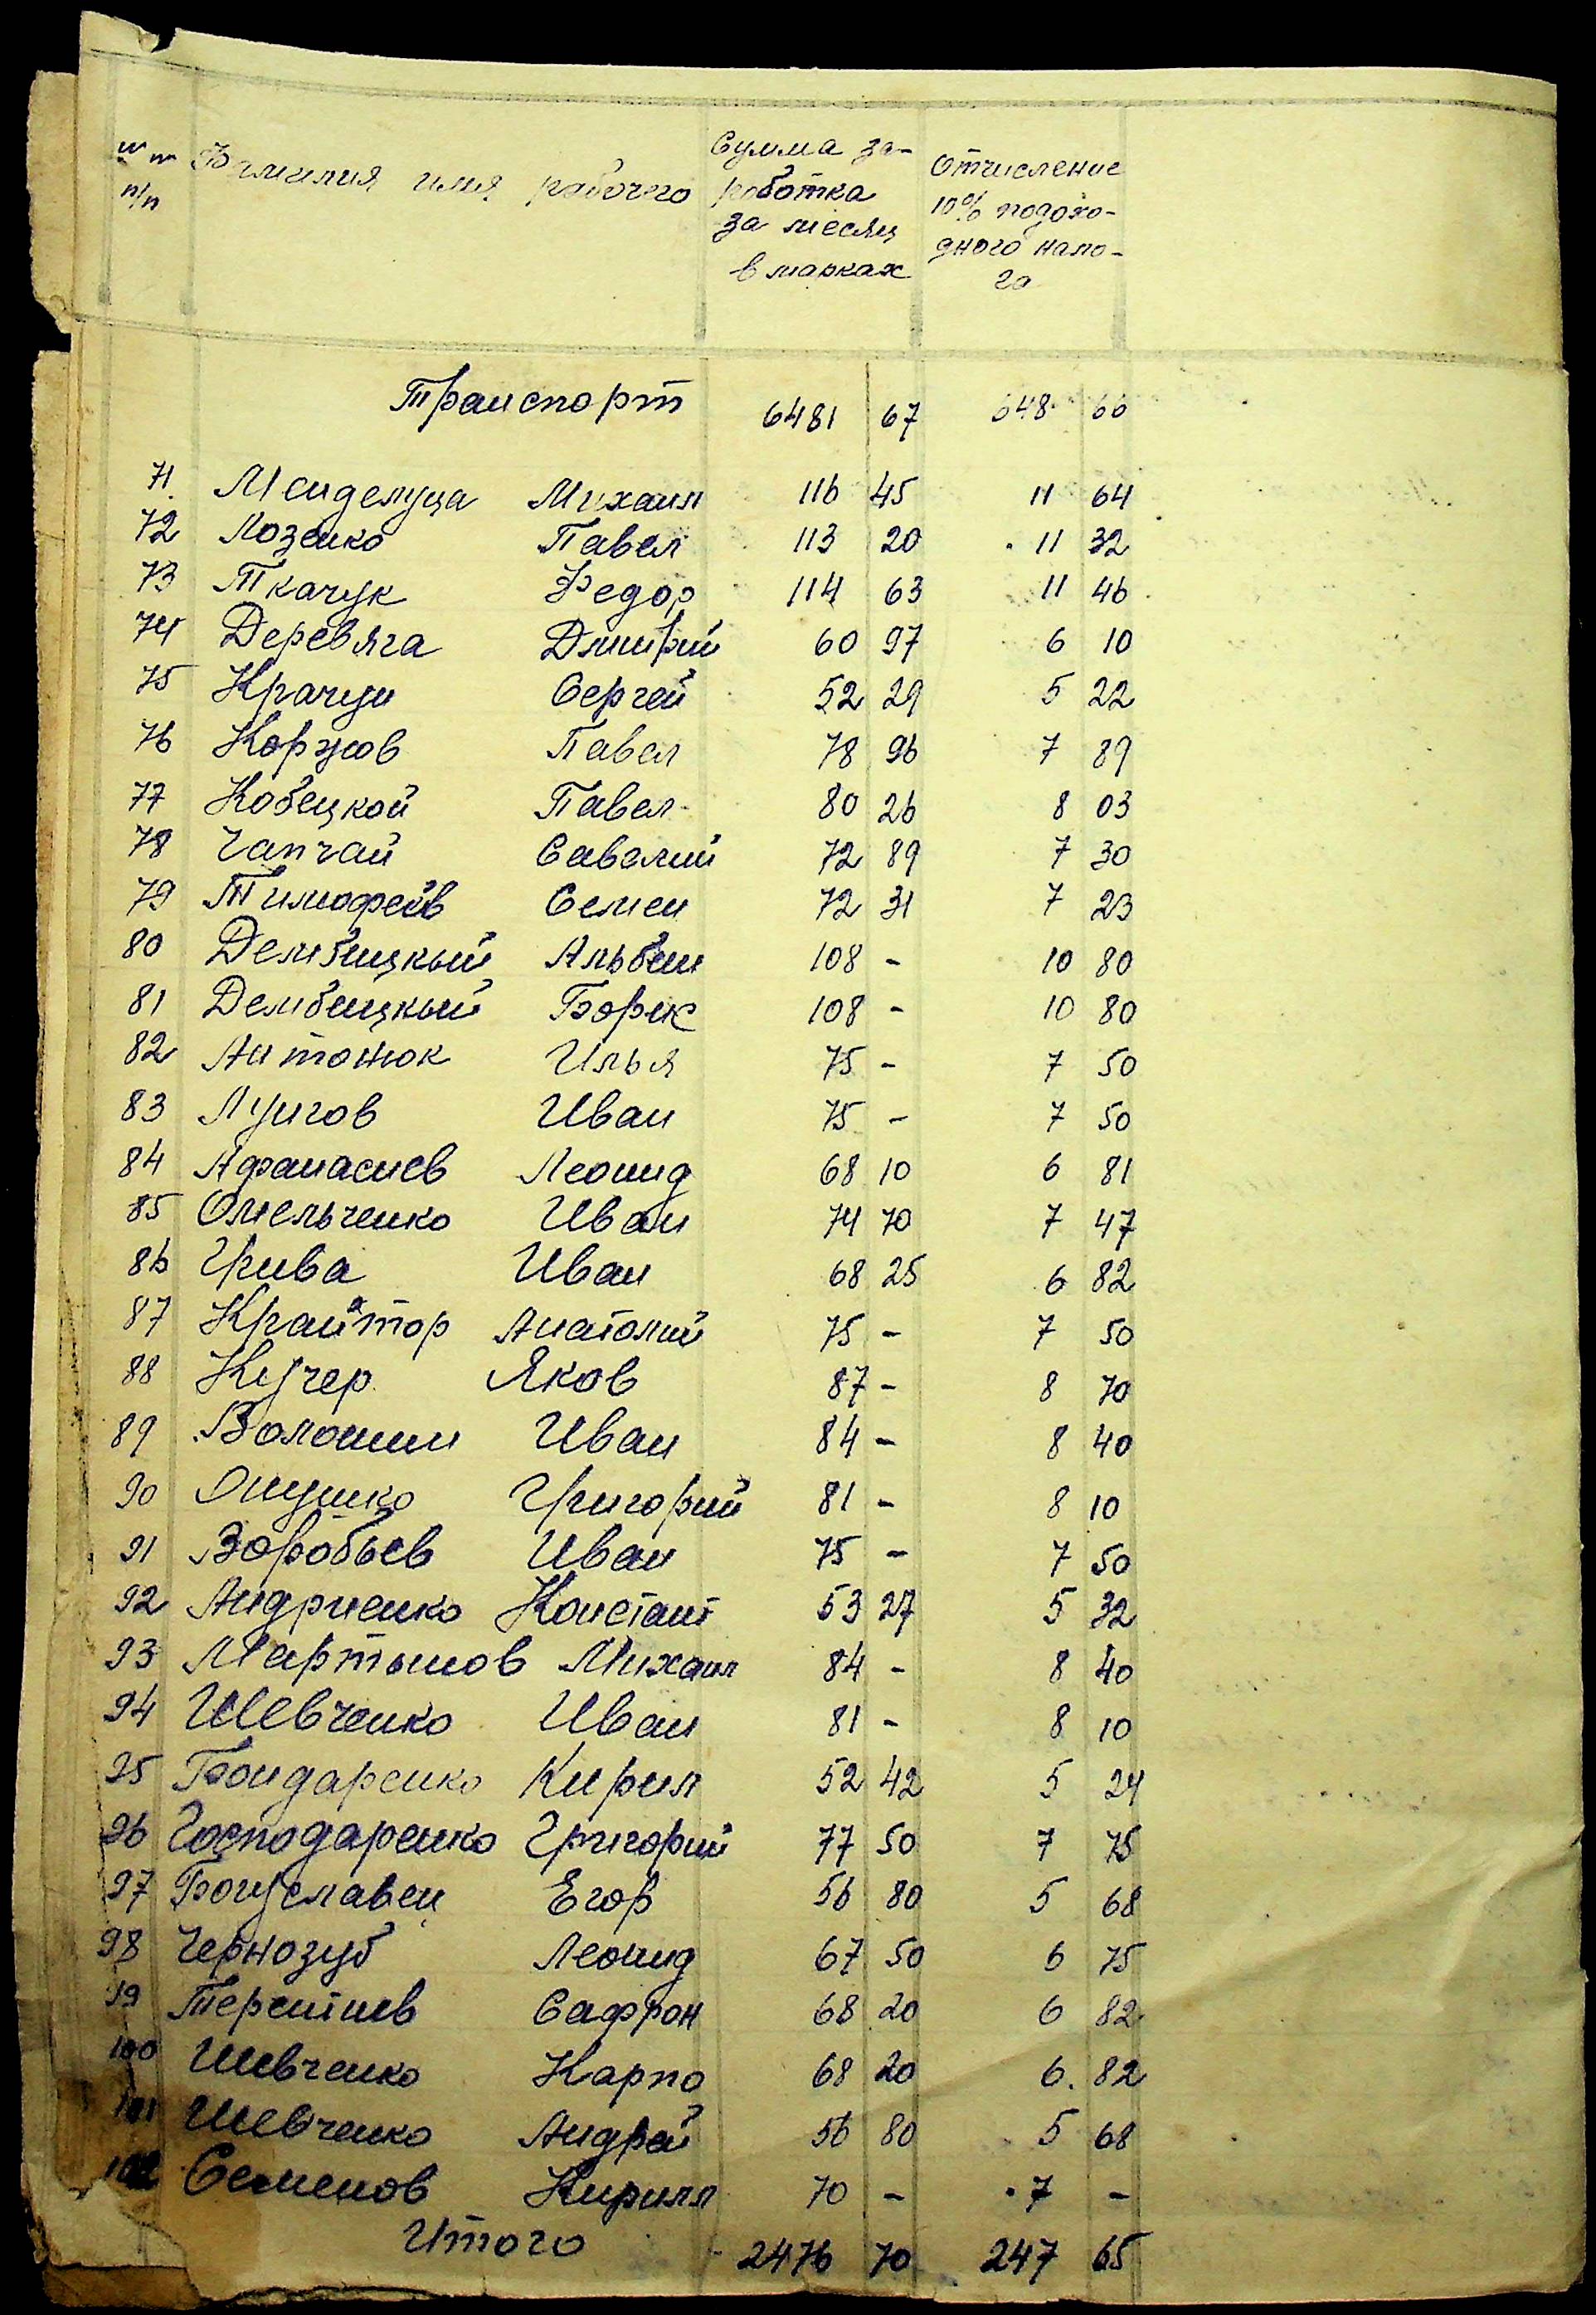 №№ Фамилия имя рабочего Сумма за- Отчисление
п/п работка 10% подохо-
за месяц дного нало-
в марках га
Транспорт 6481 67 648 66
71 Менделуца Михаил 116 45 11 64
72 Козенко Павел 113 20 11 32
73 Ткачук Федор 114 63 11 46
74 Деревяга Дмитрий 60 97 6 10
75 Крачун Сергей 52 29 5 22
76 Коржов Павел 78 96 7 89
77 Кобецкой Павел 80 26 8 03
78 Чапчай Савелий 72 89 7 30
79 Тимофеев Семен 72 31 7 23
80 Дембицкый Альбин 108 - 10 80
81 Дембицкый Борис 108 - 10 80
82 Антонюк Илья 75 - 7 50
83 Лунгов Иван 75 - 7 50
84 Афанасиев Леонид 68 10 6 81
85 Омельченко Иван 74 70 7 47
86 Грива Иван 68 25 6 82
87 Крайтор Анатолий 75 - 7 50
88 Кучер Яков 87 - 8 70
89 Волошин Иван 84 - 8 40
90 Онушко Григорий 81 - 8 10
91 Воробьев Иван 75 - 7 50
92 Андриенко Констант 53 27 5 32
93 Мартынов Михаил 84 - 8 40
94 Шевченко Иван 81 - 8 10
95 Бондаренко Кирил 52 42 5 24
96 Господаренко Григорий 77 50 7 75
97 Богуславец Егор 56 80 5 68
98 Чернозуб Леонид 67 50 6 75
99 Терентиев Сафрон 68 20 6 82
100 Шевченко Карпо 68 20 6. 82
101 Шевченко Андрей 56 80 5 68
102 Семенов Кирилл 70 - 7 -
Итого 2476 70 247 65